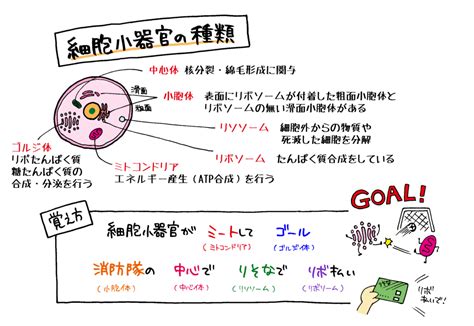 細胞小器官の種類
中心体 核分裂・綿毛形成に関与
滑面
粗面
小胞体 表面にリボソームが付着した粗面小胞体と
リボソームの無い滑面小胞体がある
リソソーム 細胞外からの物質や
死滅した細胞を分解
ゴルジ体
リポたんぱく質
糖たんぱく質の
合成・分泌を行う
リボソーム たんぱく質合成をしている
ミトコンドリア
エネルギー産生(ATP合成)を行う
GOAL!
覚え方
細胞小器官が ミートして ゴール
(ミトコンドリア) (ゴルジ体)
消防隊の 中心で りそなで リボ払い
(小胞体) (中心体) (リソソーム) (リボソーム)
リボ
払いで!